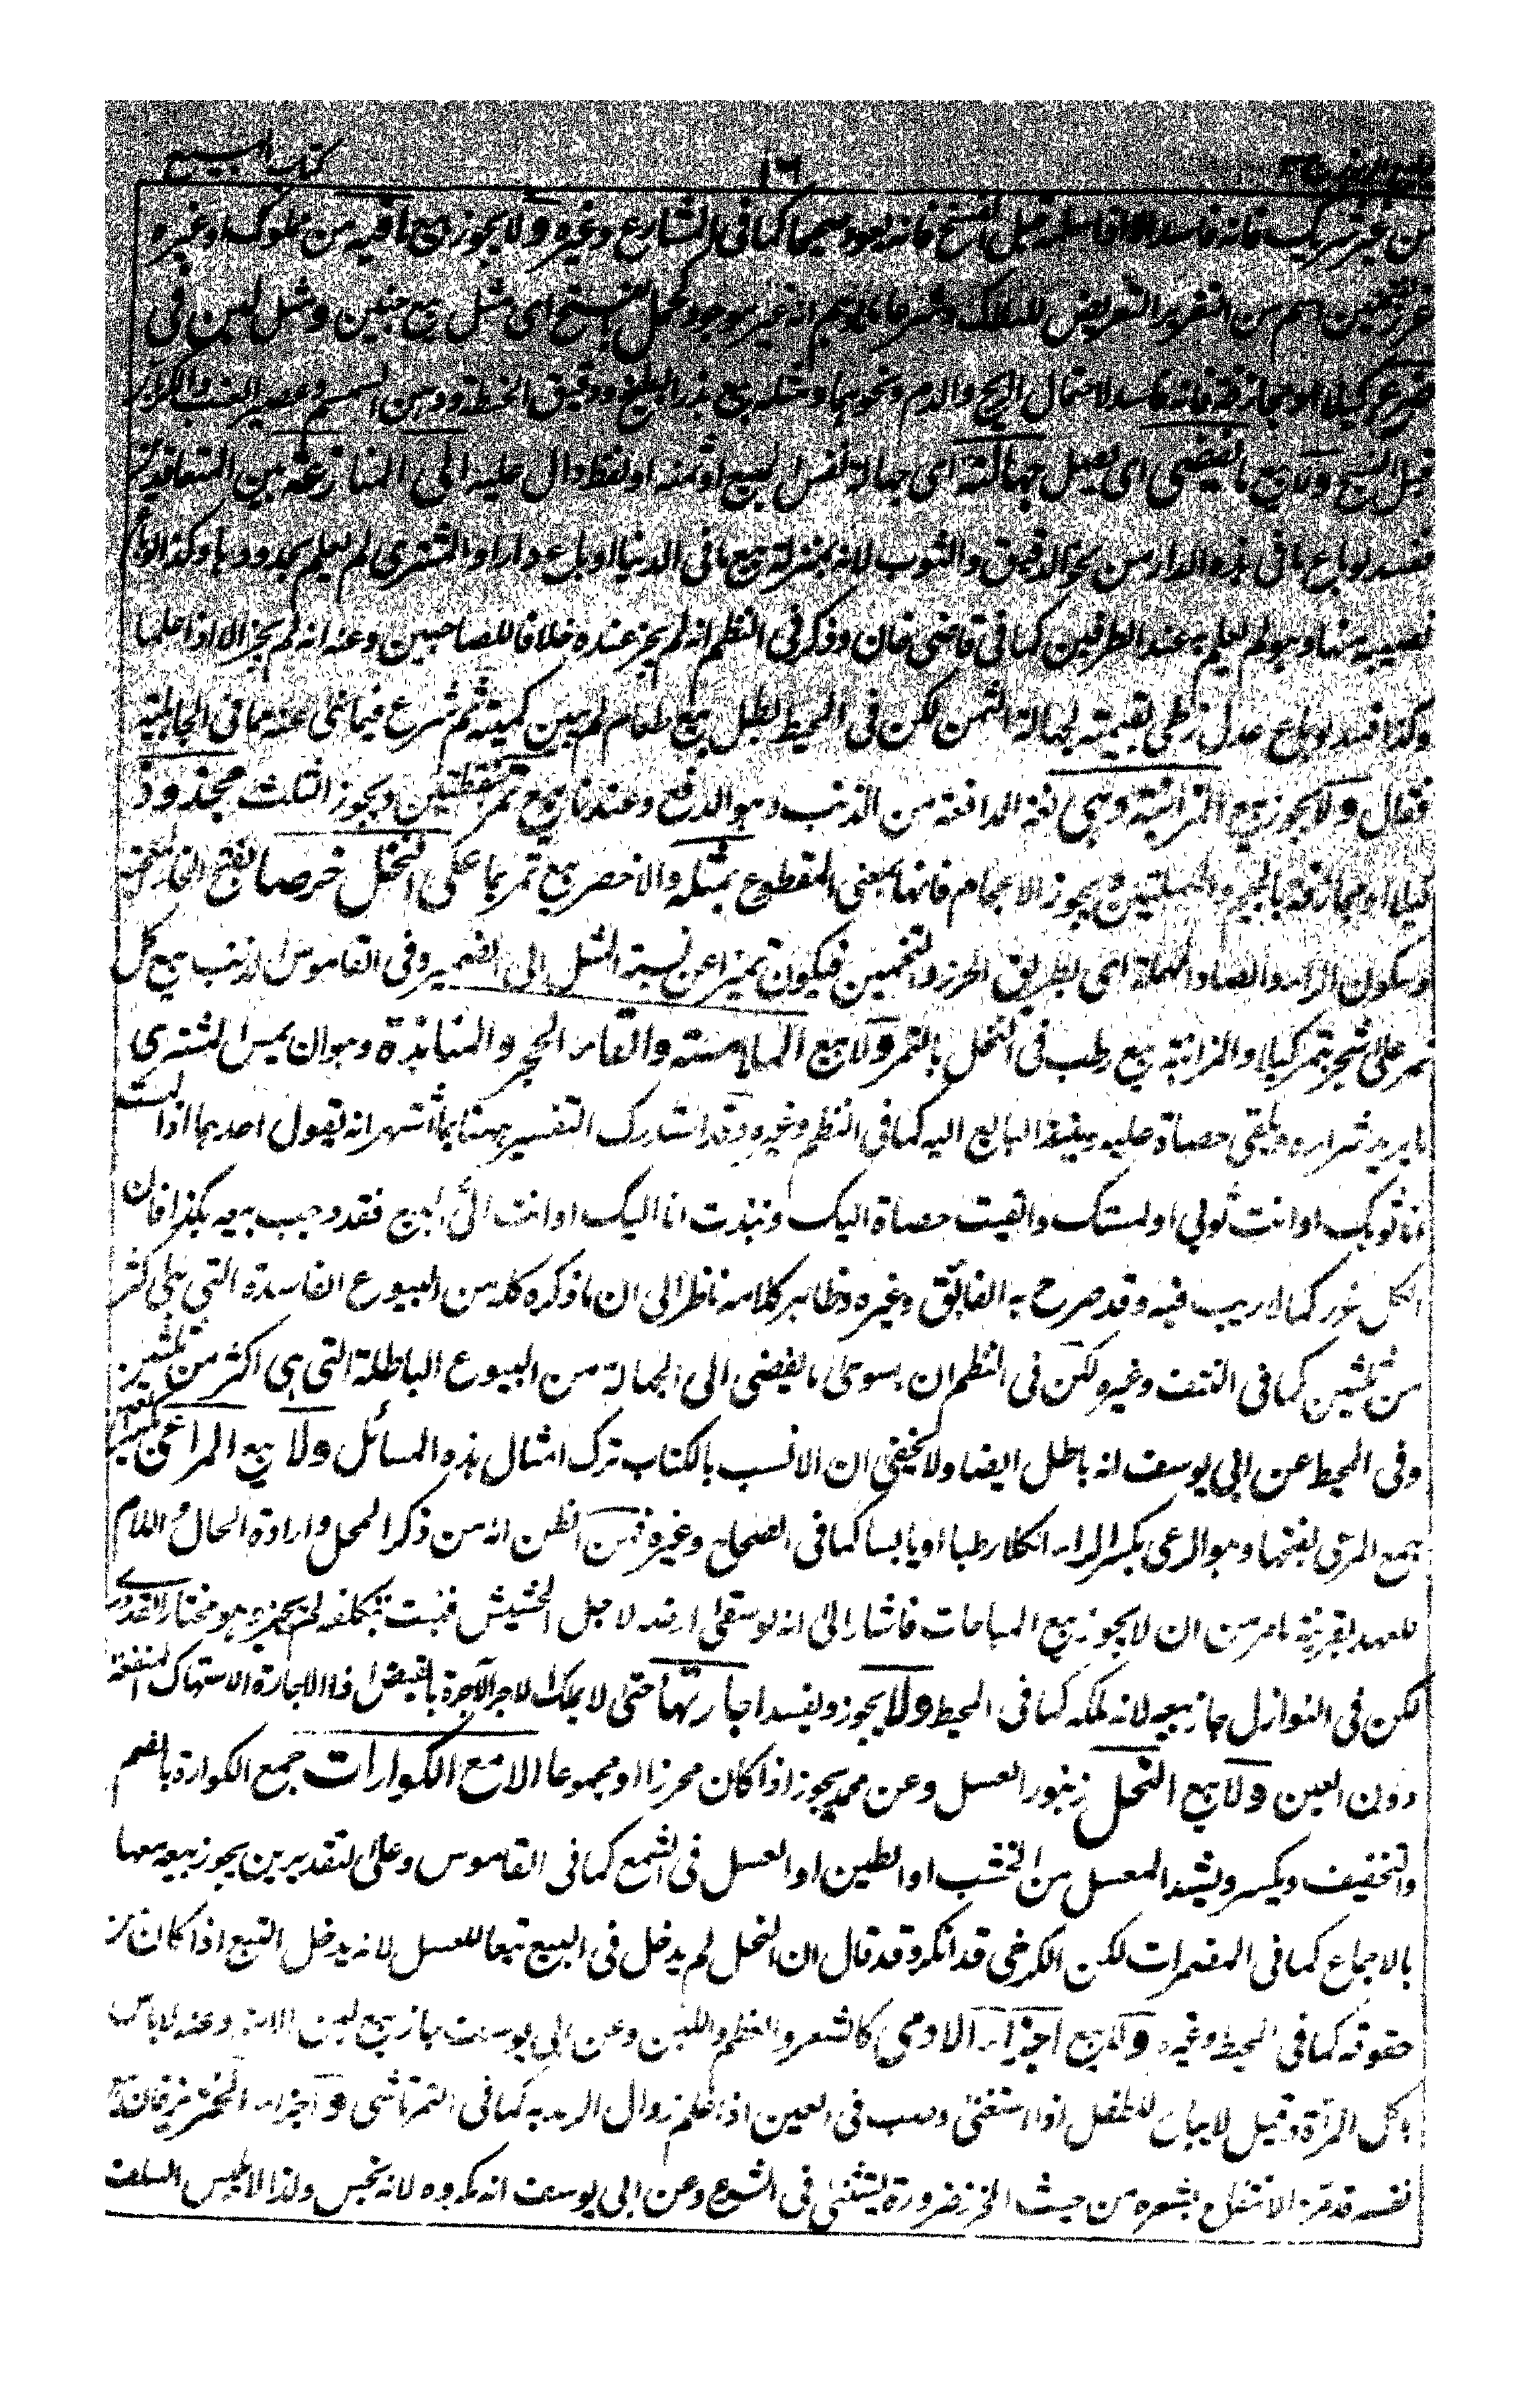 كتاب البيع
١٦
من غير شريك فانه فاسد الا اذا سلمه قبل الفسخ فانه يعود صحيحا كما فى المشارع وغيره ولا يجوز بيع ما فيه من مملوك او غيره
غرر اسم من التغرير التعريض للهلاك وشرعا انه غير موجود اى مثل بيع جنين ومثل لبن فى
ضرع كيلا او مجازفة فانه فاسد لاحتمال الريح والدم ونحوهما ومثله بيع بذر البطيخ ودقيق الحنطة ودهن السمسم وعصير العنب
قبل ولا بيع ما يفضى اى يصل جهالته اى جهالة نفس المبيع او ثمنه او لفظ دال عليه الى المنازعة بين المتعاقدين
فسد لو باع ما فى هذه الدار من نحو الدقيق والثوب لانه بمنزلة بيع ما فى الدنيا او باع دارا والمشترى لم يعلم بحدودها وكذا لو باع
نصيبه منها وهو لم يعلم به عند الطرفين كما فى قاضى خان وذكر فى النظم انه لم يجز عنده خلافا للصاحبين وعنه انه لم يجز الا اذا علما
وكذا فسد لو باع عدل زطى بقيمته لجهالة الثمن لكن فى المحيط بطل بيع طعام لم يبين كميته ثم شرع فيما نهى عنه مما فى الجاهلية
فقال ولا يجوز بيع المزابنة وهى لغة المدافعة من الزبن وهو الدفع وعندنا بيع تمر بنقطتين ويجوز الثلث مجذوذ
كيلا او مجازفة بالجيم والمعجمتين ويجوز الاعجام فانها بمعنى المقطوع بمثله والاخصر بيع تمر بما على النخل خرصا بفتح الخاء المعجمة
وسكون الراء والصاد المهملة اى بطريق الحزر والتخمين فيكون تميزا عن نسبة المثل الى الضمير وفى القاموس الزبن بيع كل
ثمر على شجر بتمر كيلا والمزابنة بيع رطب فى النخل بالتمر ولا بيع الملامسة والقاء الحجر والمنابذة وهو ان يمس المشترى
ما يريد شراءه ويلقى حصاة عليه وينبذ البائع اليه كما فى النظم وغيره وقد تشارك التفسير ههنا بما اشتهر انه يقول احدهما اذا لمست
انا ثوبك او انت ثوبى او لمستك والقيت حصاة اليك ونبذت انا اليك او انت الى المبيع فقد وجب بيعه بكذا فان
الكل غرر كما لا ريب فيه وقد صرح به الفائق وغيره وظاهر كلامه ناظر الى ان ما ذكره كله من البيوع الفاسدة التى هى اكثر
من ثلثين كما فى النتف وغيره لكن فى النظم ان سوى ما يفضى الى الجهالة من البيوع الباطلة التى هى اكثر من ثلثين
وفى المحيط عن ابى يوسف انه باطل ايضا ولا يخفى ان الانسب بالكتاب ترك امثال هذه المسائل ولا بيع المراعى
جمع المرعى بفتحها وهو الرعى بكسر الراء الكلاء رطبا او يابسا كما فى الصحاح وغيره فمن الظن انه من ذكر المحل وارادة الحال واللام
للعهد بقرينة ما مر من ان لا يجوز بيع المباحات فاشار الى انه لو سقى ارضه لاجل الحشيش فنبت بتكلفه لم يجز وهو مختار القدورى
لكن فى النوازل جاز بيعه لانه ملكه كما فى المحيط ولا يجوز ويفسد اجارتها حتى لا يملك الآجر الاجرة بالقبض اذ الاجارة لاستهلاك المنفعة
دون العين ولا بيع النحل زنبور العسل وعن محمد يجوز اذا كان محرزا او مجموعا الا مع الكوارات جمع الكوارة بالضم
والتخفيف ويكسر ويشد المعسل من الخشب او الطين او العسل فى الشمع كما فى القاموس وعلى التقديرين يجوز بيعه معها
بالاجماع كما فى المضمرات لكن الكرخى قد انكره وقد قال ان النحل لم يدخل فى البيع تبعا للعسل لانه يدخل التبع اذا كان من
حقوقه كما فى المحيط وغيره ولا بيع اجزاء الادمى كالشعر والعظم واللبن وعن ابى يوسف جاز بيع لبن الامة وعنه لا باس
اكل المرأة وقيل لا يباع للطفل اذا استغنى وصب فى العين اذا علم زوال الرمد به كما فى التمرتاشى واجزاء الخنزير فان
نفسه قد مر الا انتفاع بشعره من حيث الخرز ضرورة يستثنى فى الشرع وعن ابى يوسف انه مكروه لانه نجس ولذا لا يلبس السلف